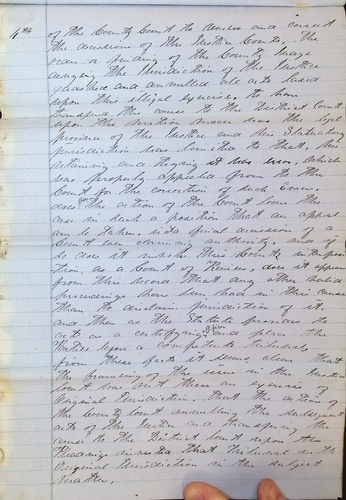 4th
of the County Court to review and correct
the decisions of the Justice Courts. The
or finding of the County Judge
denying the Jurisdiction of the Justice
quashed and annulled all acts based
upon this illegal exercise, to have
transferred the cause to the District Court
upon the question was the legal
province of the Justice and his Statutory
jurisdiction was limited to that, his
and trying it was error, which
was properly appealed from to the
Court for the correction of such Error.
does the action of the Court leave the
case in such a position that an appeal
can be taken, is it a final decision of a
Court claiming authority. and if
so does it this Courts
as a Court of Review, does it appear
from this record that any other
proceedings have been had in this cause
than to disclaim jurisdiction of it.
and then as the Statute provides to
act on a certifying and place the
Parties before a competent tribunal
from these facts it seems clear that
the framing of the issue in the Justice
Court was not an exercise of
Original Jurisdiction. That the action of
the County Court annulling the subsequent
acts of the Justice and transferring the
cause to the District Court upon the
Pleadings that tribunal with
Original Jurisdiction in the subject
matter.